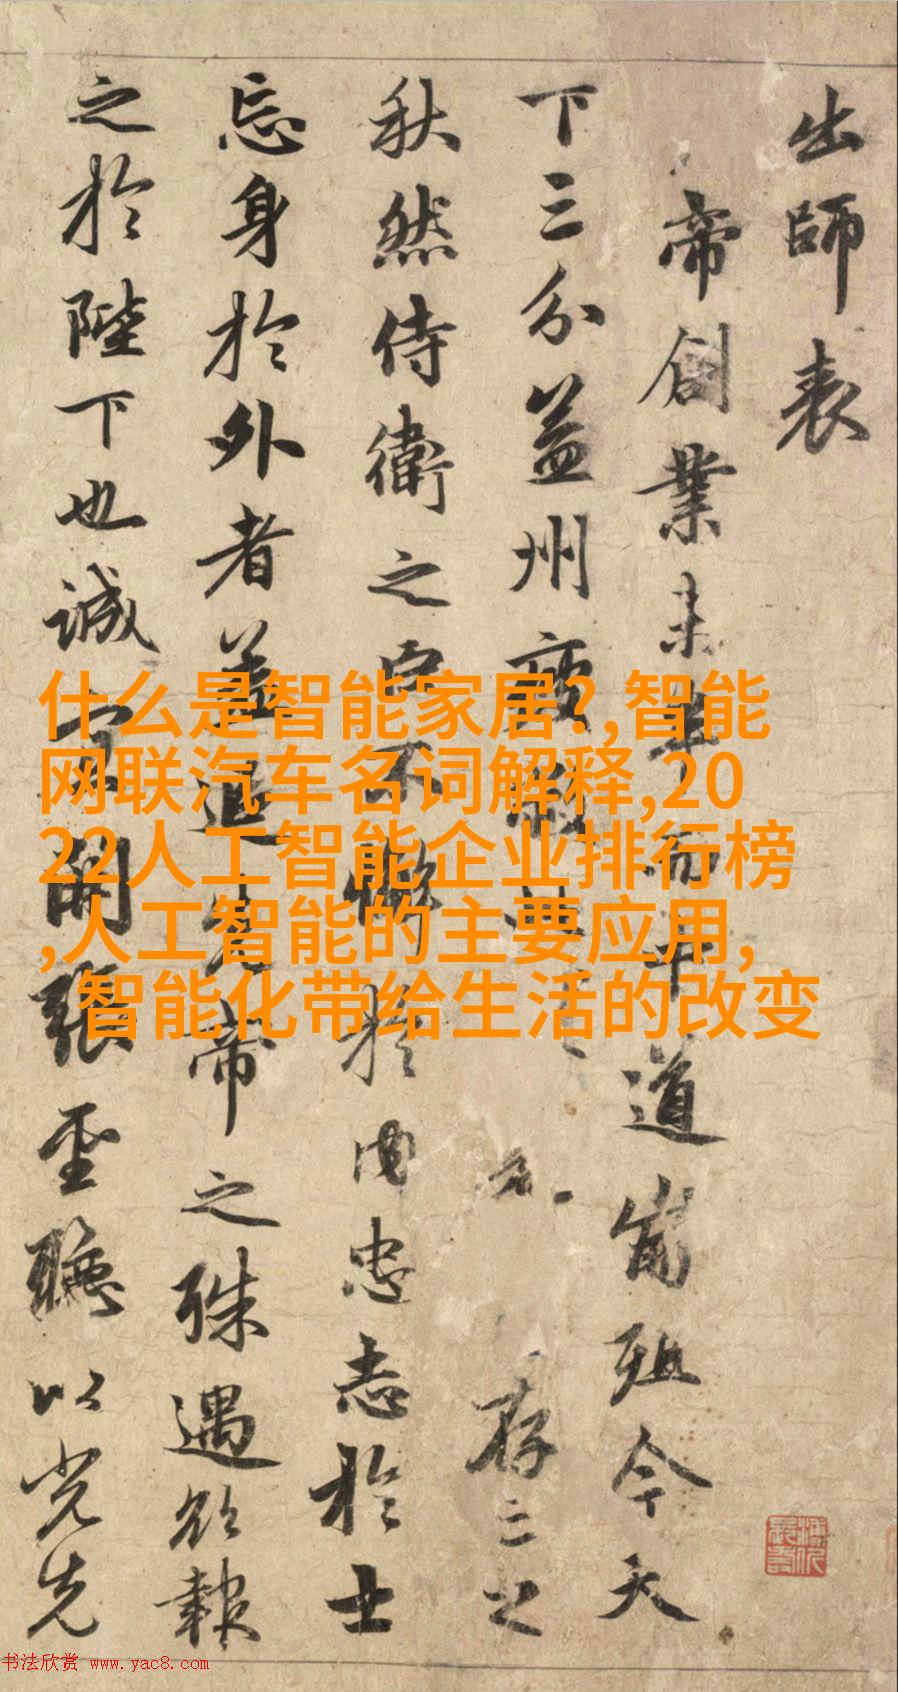 出師表
帝創業未半而中道崩殂今天
下三分益州疲敝存亡之
秋然侍衛之臣不懈於內忠志於士
忘身於外者蓋追先帝之殊遇欲報
之於陛下也誠宜開張聖聽以光先
什么是智能家居?,智能
网联汽车名词解释,20
22人工智能企业排行榜
,人工智能的主要应用,
智能化带给生活的改变
书法欣赏 www.yac8.com